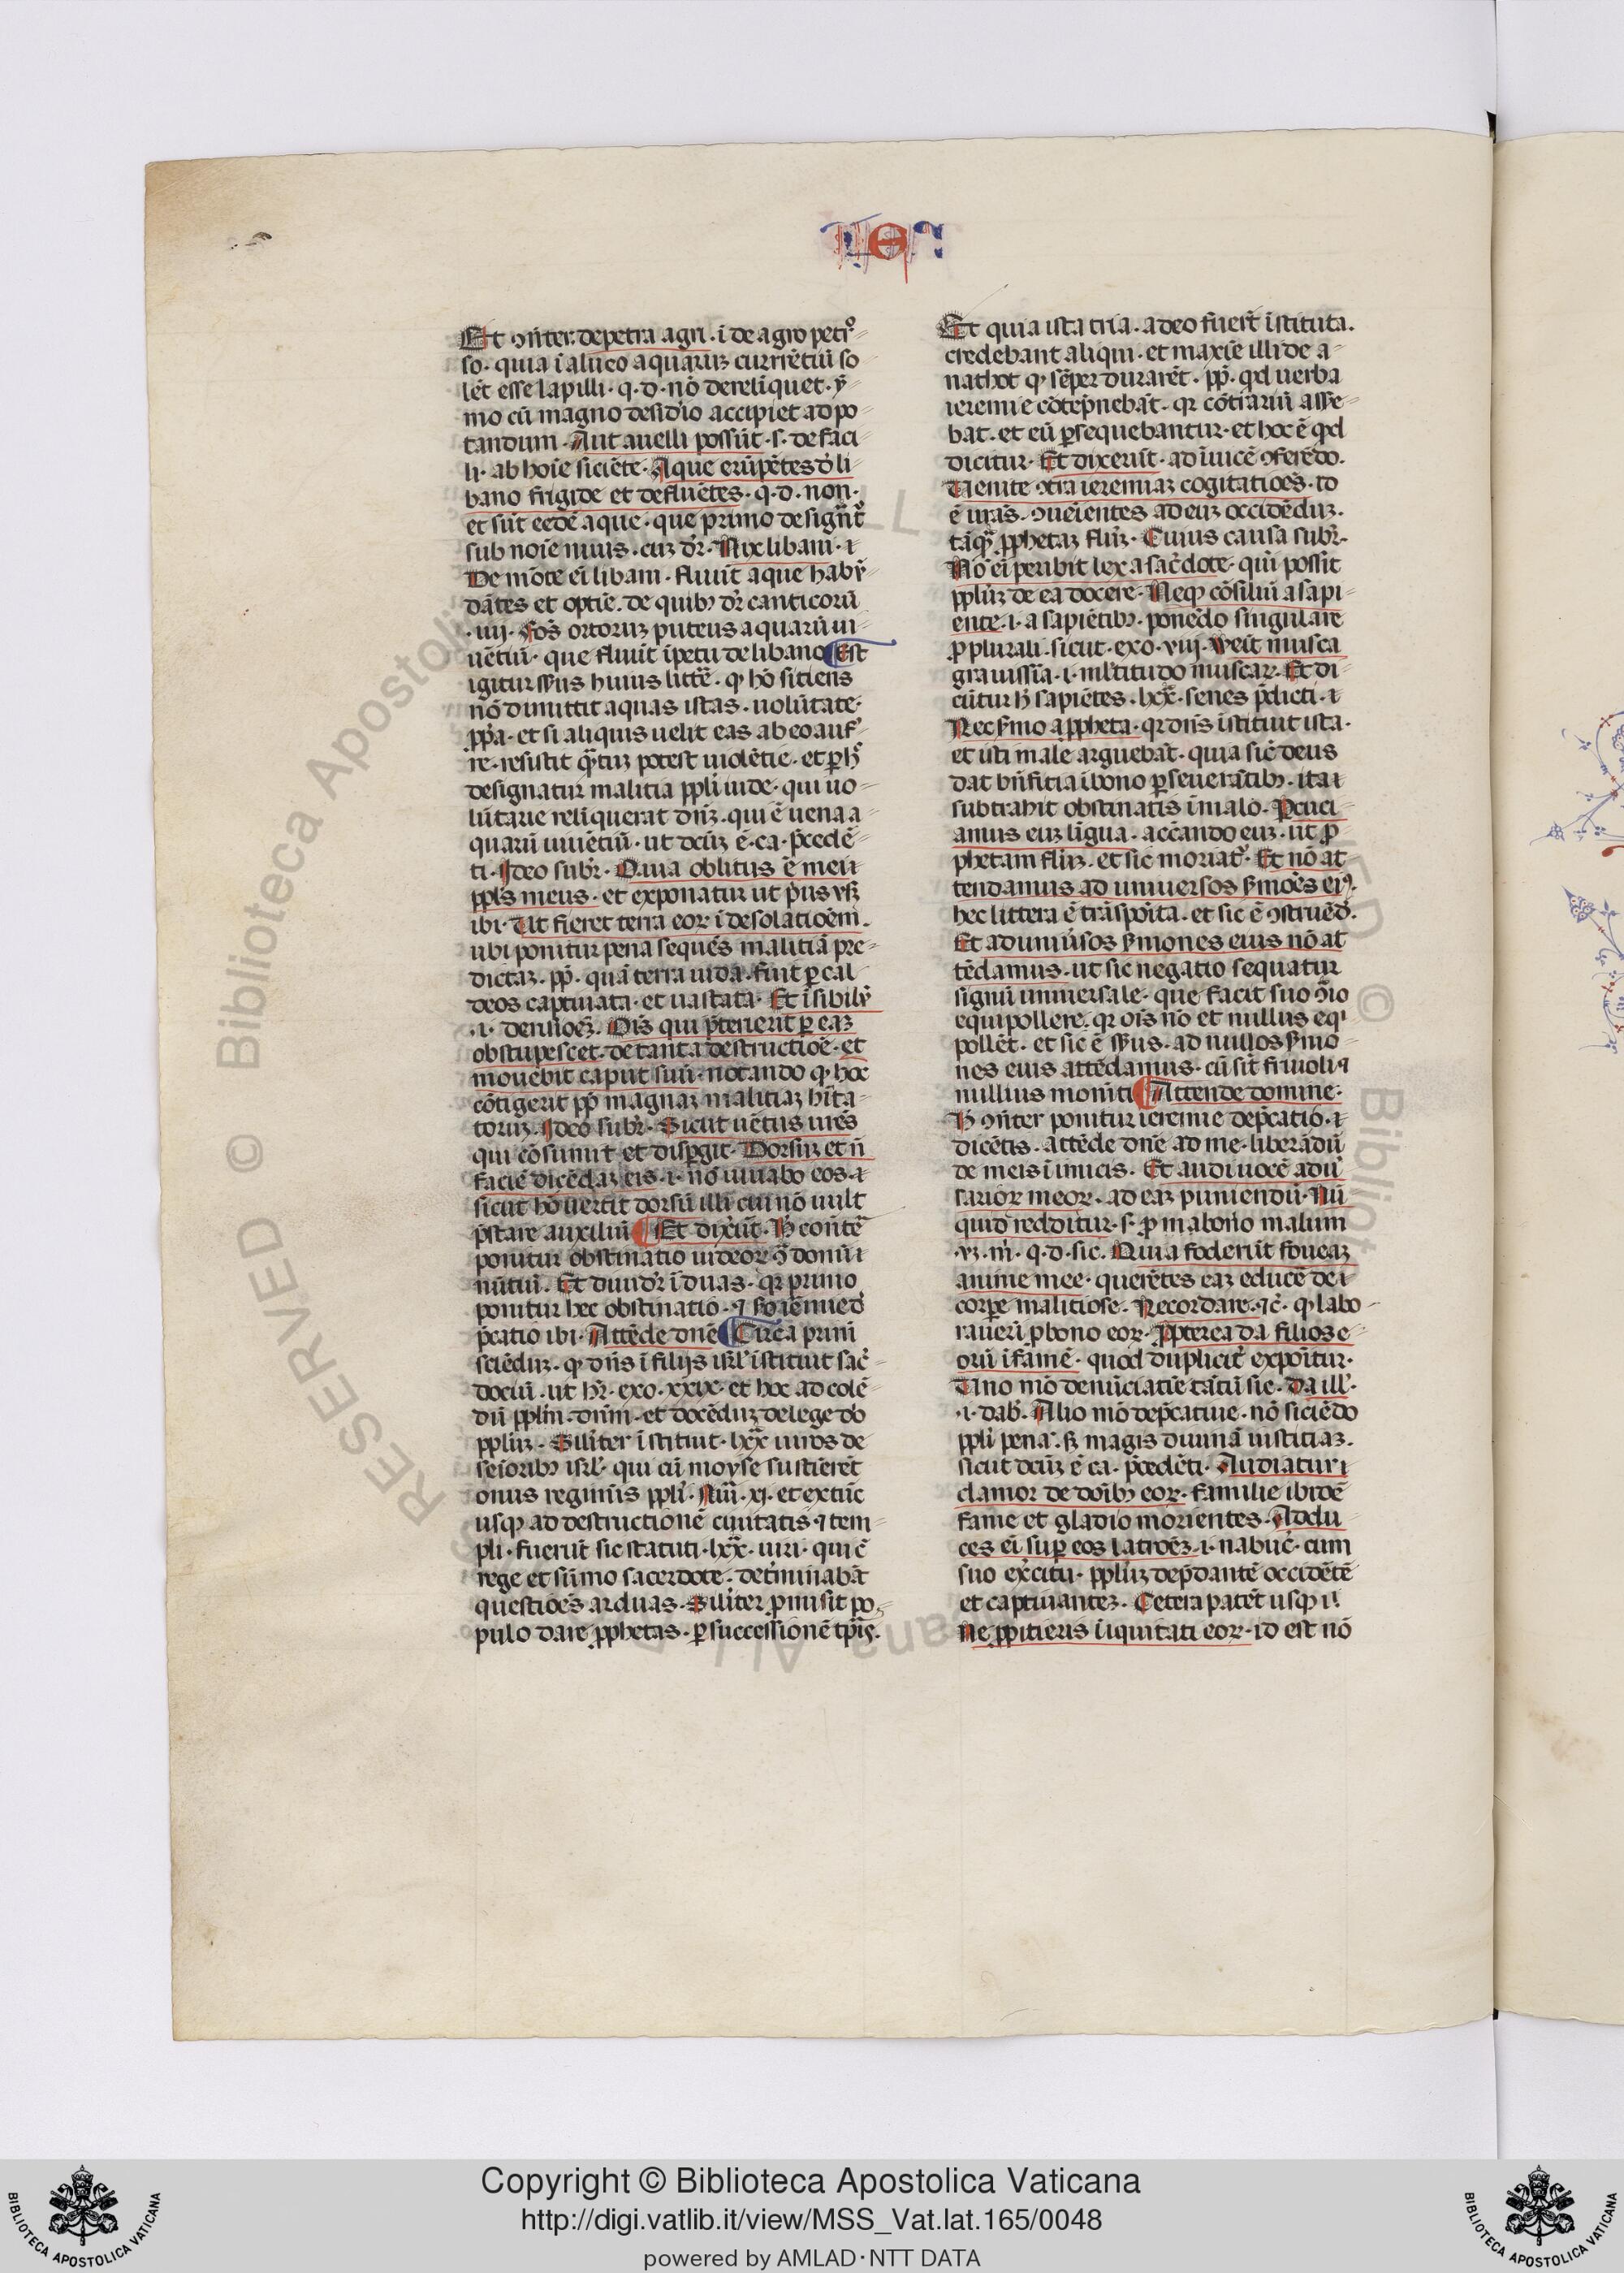 IER
Et ↄñter. de petra agri. i de agro petro
so. quia ī alueo aquaruꝫ currētiū so
lēt esse lapilli. q. d. nō dereliquet. ỹ
mo cū magno desiđio accipiet ad po
tandum. Aut auelli possūt. s. de faci
li. ab hoīe siciēte. Aque erūpētes đ li
bano frigide et defluētes. q. d. non.
et sūt eedē aque. que primo designāt᷑
sub noīe niuis. cuꝫ dr̄. Nix libani. ⁊
De mōte eī libani. fluūt aque habū
dātes et optīe. de quibꝫ dr̄ canticorū
.iiij. Fōs ortoruꝫ puteus aquarū ui
uētiū. que fluūt īpetu de libano Est
igitur sēsus huius littē. ꝙ hō sitiens
nō dimittit aquas istas. uolūtate
ꝓp̄a. et si aliquis uelit eas ab eo auf᷑
re. resistit q̄tuꝫ potest uiolētie. et ꝑ h̄
designatur malitia ppl̄i iude. qui uo
lūtarie reliquerat dn̄ꝫ. qui ē uena a
quarū uiuētiū. ut dcūꝫ ē. ca. p̄cedē
ti. Ideo subr̄. Quia oblitus ē mei
ppl̄s meus. et exponatur ut p̄us usqꝫ
ibi. Ut fieret terra eoꝝ ī desolatioēm.
ubi ponitur pena sequēs malitiā pre
dictaꝫ. pp̄. quā terra iuda fuit ꝑ cal
deos captiuata. et uastata. Et ī sibilū
.i. derisioēꝫ. Oīs qui p̄terierit ꝑ eaꝫ
obstupescet. de tanta destructioē. et
mouebit caput suū. notando ꝙ hoc
cōtigerit pp̄ magnaꝫ malitiaꝫ hīta
toruꝫ. Ideo subr̄. Sicut uētus urēs
qui cōsumit et disꝑgit. Dorsuꝫ et ñ
faciē dicēdaꝫ eis. i. nō iuuabo eos. ⁊
sicut hō uertit dorsū illi cui nō uult
p̄stare auxiliū Et dixērūt. H̄ conñter
ponitur obstinatio iudeoꝝ ↄ̄ domi
nūtiū. Et diuidr̄ ī duas. qꝛ primo
ponitur hec obstinatio. ⁊ sc̄do ieremie d
p̄catio ibi. Attēde dn̄e Circa primū
sciēduꝫ. ꝙ dn̄s ī filijs isrl̄ īstituit sac̄
dociū. ut hr̄. exo. xxix. et hoc ad colē
dū ppl̄m. dn̄m. et docēduꝫ de lege do
ppl̄uꝫ. Siliter īstituit. lxx̄. uiros de
seioribꝫ isrl̄. qui cū moyse sustierēt
onus regimīs ppl̄i. Nūi. xj. et extūc
usqꝫ ad destructionē ciuitatis. ⁊ tem
pli. fuerūt sic statuti. lxx̄. uiri. qui ē
rege et sūmo sacerdote. det̄minabāt
questiōes arduas. Siliter ꝓmisit po
pulo dare ꝓphetas. ꝑ successionē tꝑis.
Et quia ista tria. a deo fuerūt īstituta.
credebant aliqui. et maxīe illi de a
nathot ꝙ sēper durarēt. pp̄. qd̄ uerba
ieremie cōtēp̄nebāt. qꝛ cōtrariū asse
bat. et eū ꝑsequebantur. et hoc ē qd̄
dicitur. Et dixerūt. ad īuicē ↄferēdo.
Uenite ↄtra ieremiaꝫ cogitatioēs. to
ē uiās. īueīentes ad euꝫ occidēduꝫ.
tāqꝫ ꝓphetaꝫ fl̄uꝫ. Cuius causa subr̄.
Nō eī peribit lex a sac̄dote. qui possit
ppl̄uꝫ de ea docere. Neqꝫ cōsiliū a sapi
ente. i. a sapiētibꝫ. ponēdo singulare
ꝓ plurali. sicut. exo. viij. Veīt musca
grauissīa. i. ml̄titudo muscaꝝ. Et di
cūtur h̄ sapiētes. lxx̄. senes p̄dicti. ⁊
Nec s̄mo a ꝓpheta. qꝛ dn̄s īstituit ista.
et isti male arguebāt. quia sic̄ deus
dat bn̄ficia ī bono ꝑseuerātibꝫ. ita ⁊
subtrahit obstinatis ī malo. Percuci
amus euꝫ līgua. accūando euꝫ. ut ꝓ
phetam fl̄uꝫ. et sic moriat᷑. Et nō at
tendamus ad uniuersos s̄moēs eiꝰ.
hec littera ē trāspoīta. et sic ē ↄstruēd᷑.
Et ad uniūsos s̄mones eius nō at
tēdamus. ut sic negatio sequatur
signū uniuersale. que facit suo ↄ̄rio
equipollere. qꝛ oīs nō et nullus eq̄
pollēt. et sic ē sēsus. ad nullos s̄mo
nes eius attēdamus. cū sīt friuoli ⁊
nullius momēti Attende domine.
H̄ ↄñter ponitur ieremie dep̄catio. ⁊
dicētis. attēde dn̄e ad me. liberādū
de meis īimicis. Et audi uocē aduer
sarioꝝ meoꝝ. ad eaꝫ puniendū. Nū
quid redditur. s. ꝓ m a bono malum
.vꝫ. m̄. q. d. sic. Quia foderūt foueaꝫ
anime mee. querētes eaꝫ educē de ⁊
corꝑe malitiose. Recordare. ⁊c̄. ꝙ labo
rauerī ꝓ bono eoꝝ. Propterea da filios e
orū ī famē. quod duplicit᷑ expoītur.
Uno mō denūciatīe tātū sic. Da ill̄.
.i. dabꝭ. Alio mō dep̄catiue. nō siciēdo
ppl̄i penā. sꝫ magis diuinā iusticiaꝫ.
sicut dcūꝫ ē ca. p̄cedēti. Audiatur ⁊
clamor de doībꝫ eoꝝ. familie ibidē
fame et gladio morientes. Addu
ces eī suꝑ eos latroēꝫ. i. nabuc̄. cum
suo ex̄citu. ppl̄uꝫ dep̄dantē occidētē
et captiuanteꝫ. Cetera patēt usqꝫ ī
Ne ꝓpitieris īiquitati eoꝝ. id est nō
Copyright © Biblioteca Apostolica Vaticana
http://digi.vatlib.it/view/MSS_Vat.lat.165/0048
powered by AMLAD·NTT DATA
BIBLIOTECA APOSTOLICA VATICANA
BIBLIOTECA APOSTOLICA VATICANA